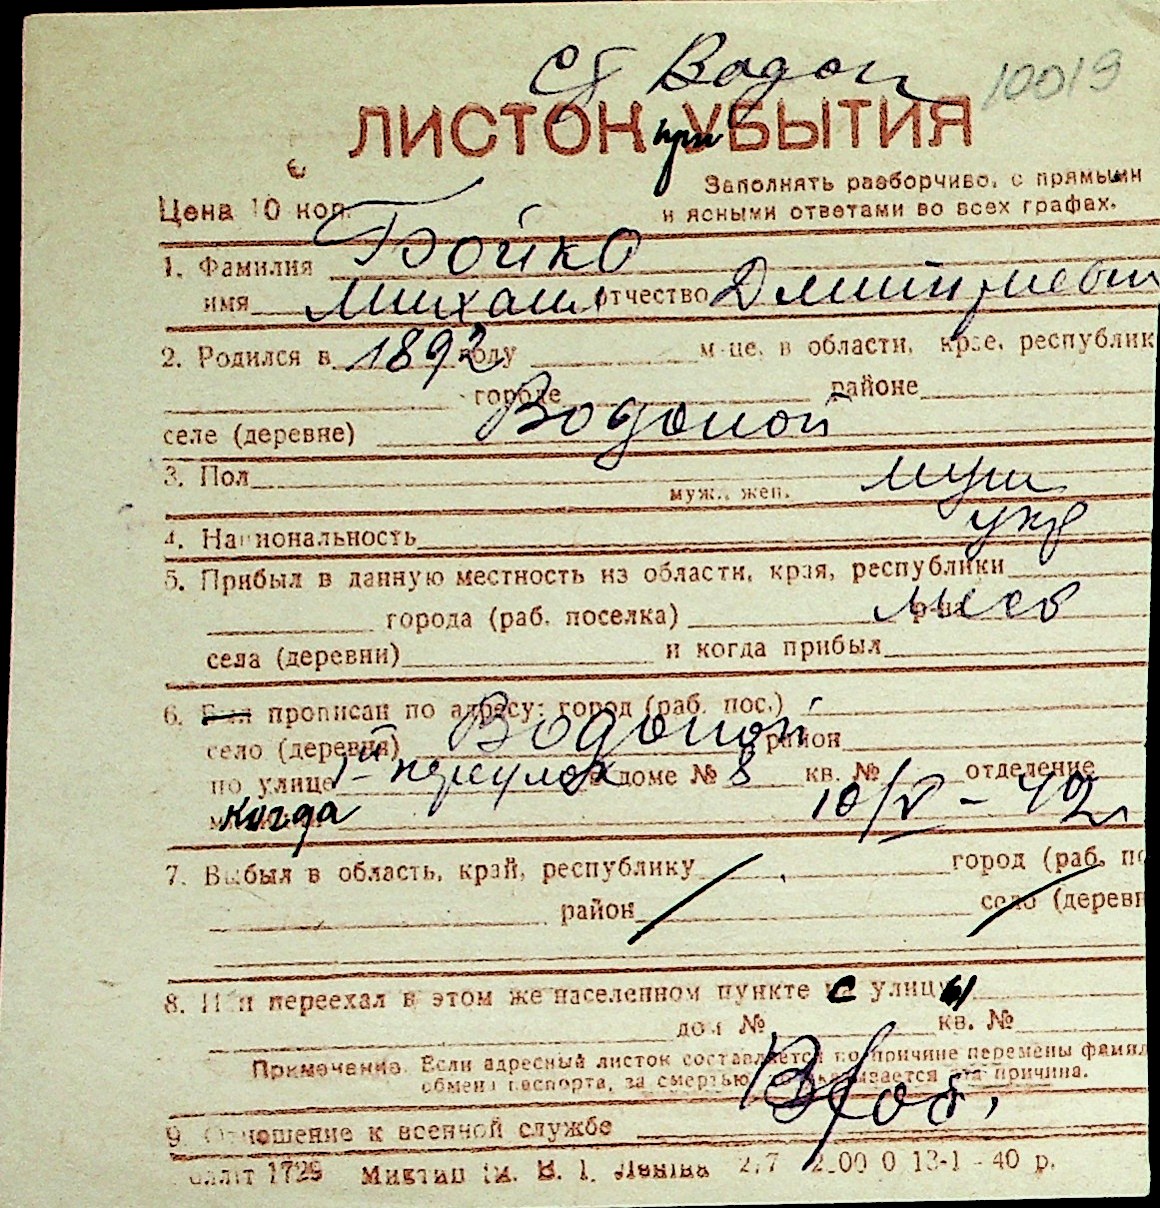 Ст Водоп 10019
ЛИСТОК при УБЫТИЯ
Заполнять разборчиво, с прямыми
Цена 10 коп. и ясными ответами во всех графах.
1. Фамилия Бойко
имя Михаил отчество Дмитриевич
2. Родился в 1892 году м-це, в области, крае, республик
городе районе
селе (деревне) Водопой
3. Пол муж., жен. муж
4. Национальность укр
5. Прибыл в данную местность из области, края, республики
города (раб. поселка) р-на
села (деревни) и когда прибыл
6. Был прописан по адресу: город (раб. пос.)
село (деревня) Водопой район
по улице 1-й переулок доме № 8 кв. № отделение
когда 10/V - 42
7. Выбыл в область, край, республику город (раб. по
район село (деревн
8. Или переехал в этом же населенном пункте с улицы
дом № кв. №
Примечание. Если адресный листок составляется по причине перемены фамил
обмена паспорта, за смертью, указывается эта причина.
9. Отношение к военной службе
1729 В. І. Леніна 2000 0 13-1 - 40 р.